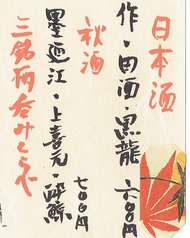 日本酒
作・田酒・黒龍 六〇〇円
秋酒
墨廼江・上喜元・酔鯨
七〇〇円
三銘柄呑みくらべ